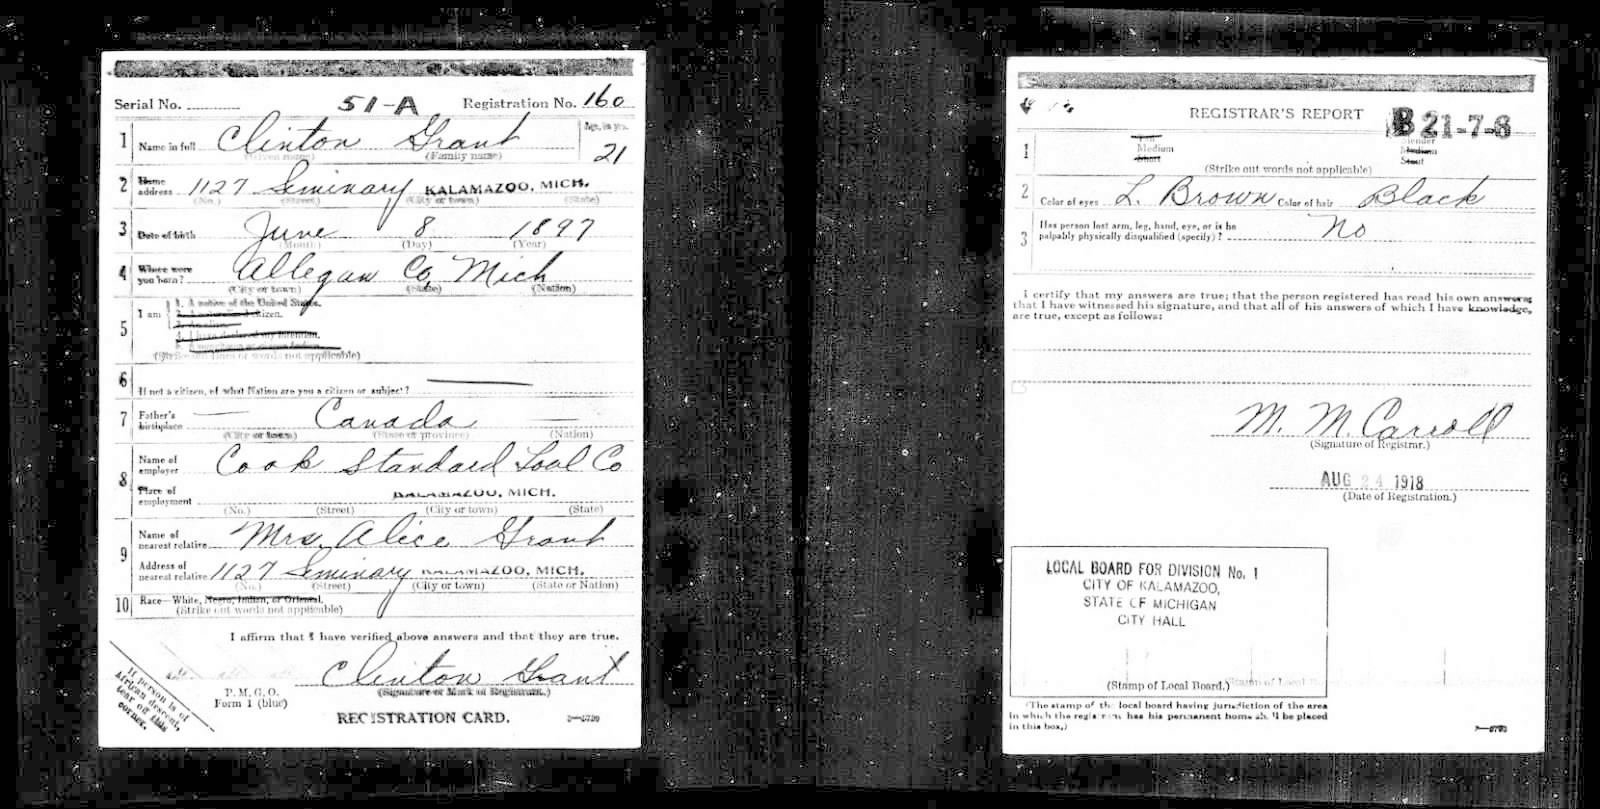 Serial No. 51-A Registration No. 160
1 Name in full Clinton Grant Age, in yrs. 21
(Given name) (Family name)
2 Home address 1127 Seminary KALAMAZOO, MICH.
(No.) (Street) (City or town) (State)
3 Date of birth June 8 1897
(Month) (Day) (Year)
4 Where were you born? Allegan Co, Mich
(City or town) (State) (Nation)
5 I am 1. A native of the United States.
citizen.
4. I have declared my intention.
(Strike out lines or words not applicable)
6 If not a citizen, of what Nation are you a citizen or subject?
7 Father's birthplace Canada
(City or town) (State or province) (Nation)
8 Name of employer Cook Standard Tool Co
Place of employment KALAMAZOO, MICH.
(No.) (Street) (City or town) (State)
9 Name of nearest relative Mrs. Alice Grant
Address of nearest relative 1127 Seminary KALAMAZOO, MICH.
(No.) (Street) (City or town) (State or Nation)
10 Race—White, Negro, Indian, or Oriental.
(Strike out words not applicable)
I affirm that I have verified above answers and that they are true.
Clinton Grant
(Signature or Mark of Registrant.)
P. M. G. O.
Form 1 (blue)
REGISTRATION CARD.
If person is of
African descent,
tear off this
corner.
REGISTRAR'S REPORT
B 21-7-6
1 Medium Slender
Short Medium
Stout
(Strike out words not applicable)
2 Color of eyes L. Brown Color of hair Black
3 Has person lost arm, leg, hand, eye, or is he
palpably physically disqualified (specify)? No
I certify that my answers are true; that the person registered has read his own answers;
that I have witnessed his signature, and that all of his answers of which I have knowledge,
are true, except as follows:
M. M. Carroll
(Signature of Registrar.)
AUG 24 1918
(Date of Registration.)
LOCAL BOARD FOR DIVISION No. 1
CITY OF KALAMAZOO,
STATE OF MICHIGAN
CITY HALL
(Stamp of Local Board.)
(The stamp of the local board having jurisdiction of the area
in which the registrant has his permanent home shall be placed
in this box.)